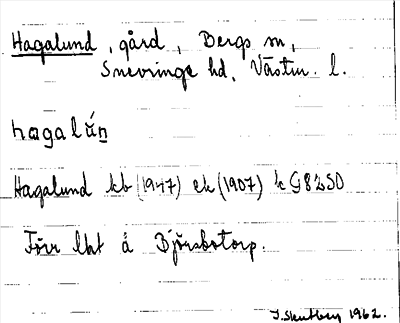 Hagalund, gård, Bergs sn,
Snevringe hd, Västm. l.
hagalún
Hagalund kb (1947) ek (1907) k G8250
Förr lht å Björsbotorp.
1962.